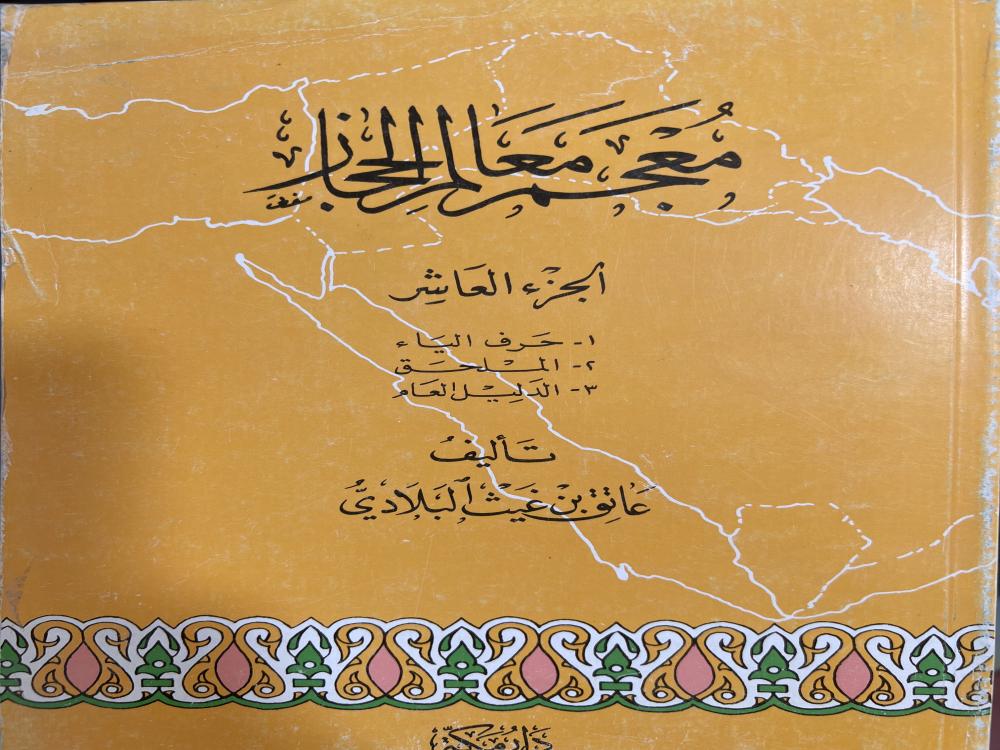 مُعْجَم مَعَالِم الحِجَاز
الجزء العَاشِر
١- حَرف اليَاء
٢- الملحَق
٣- الدَليل العَام
تَأليفُ
عَاتِق بن غَيث البَلَاديّ
دَار مَكّة